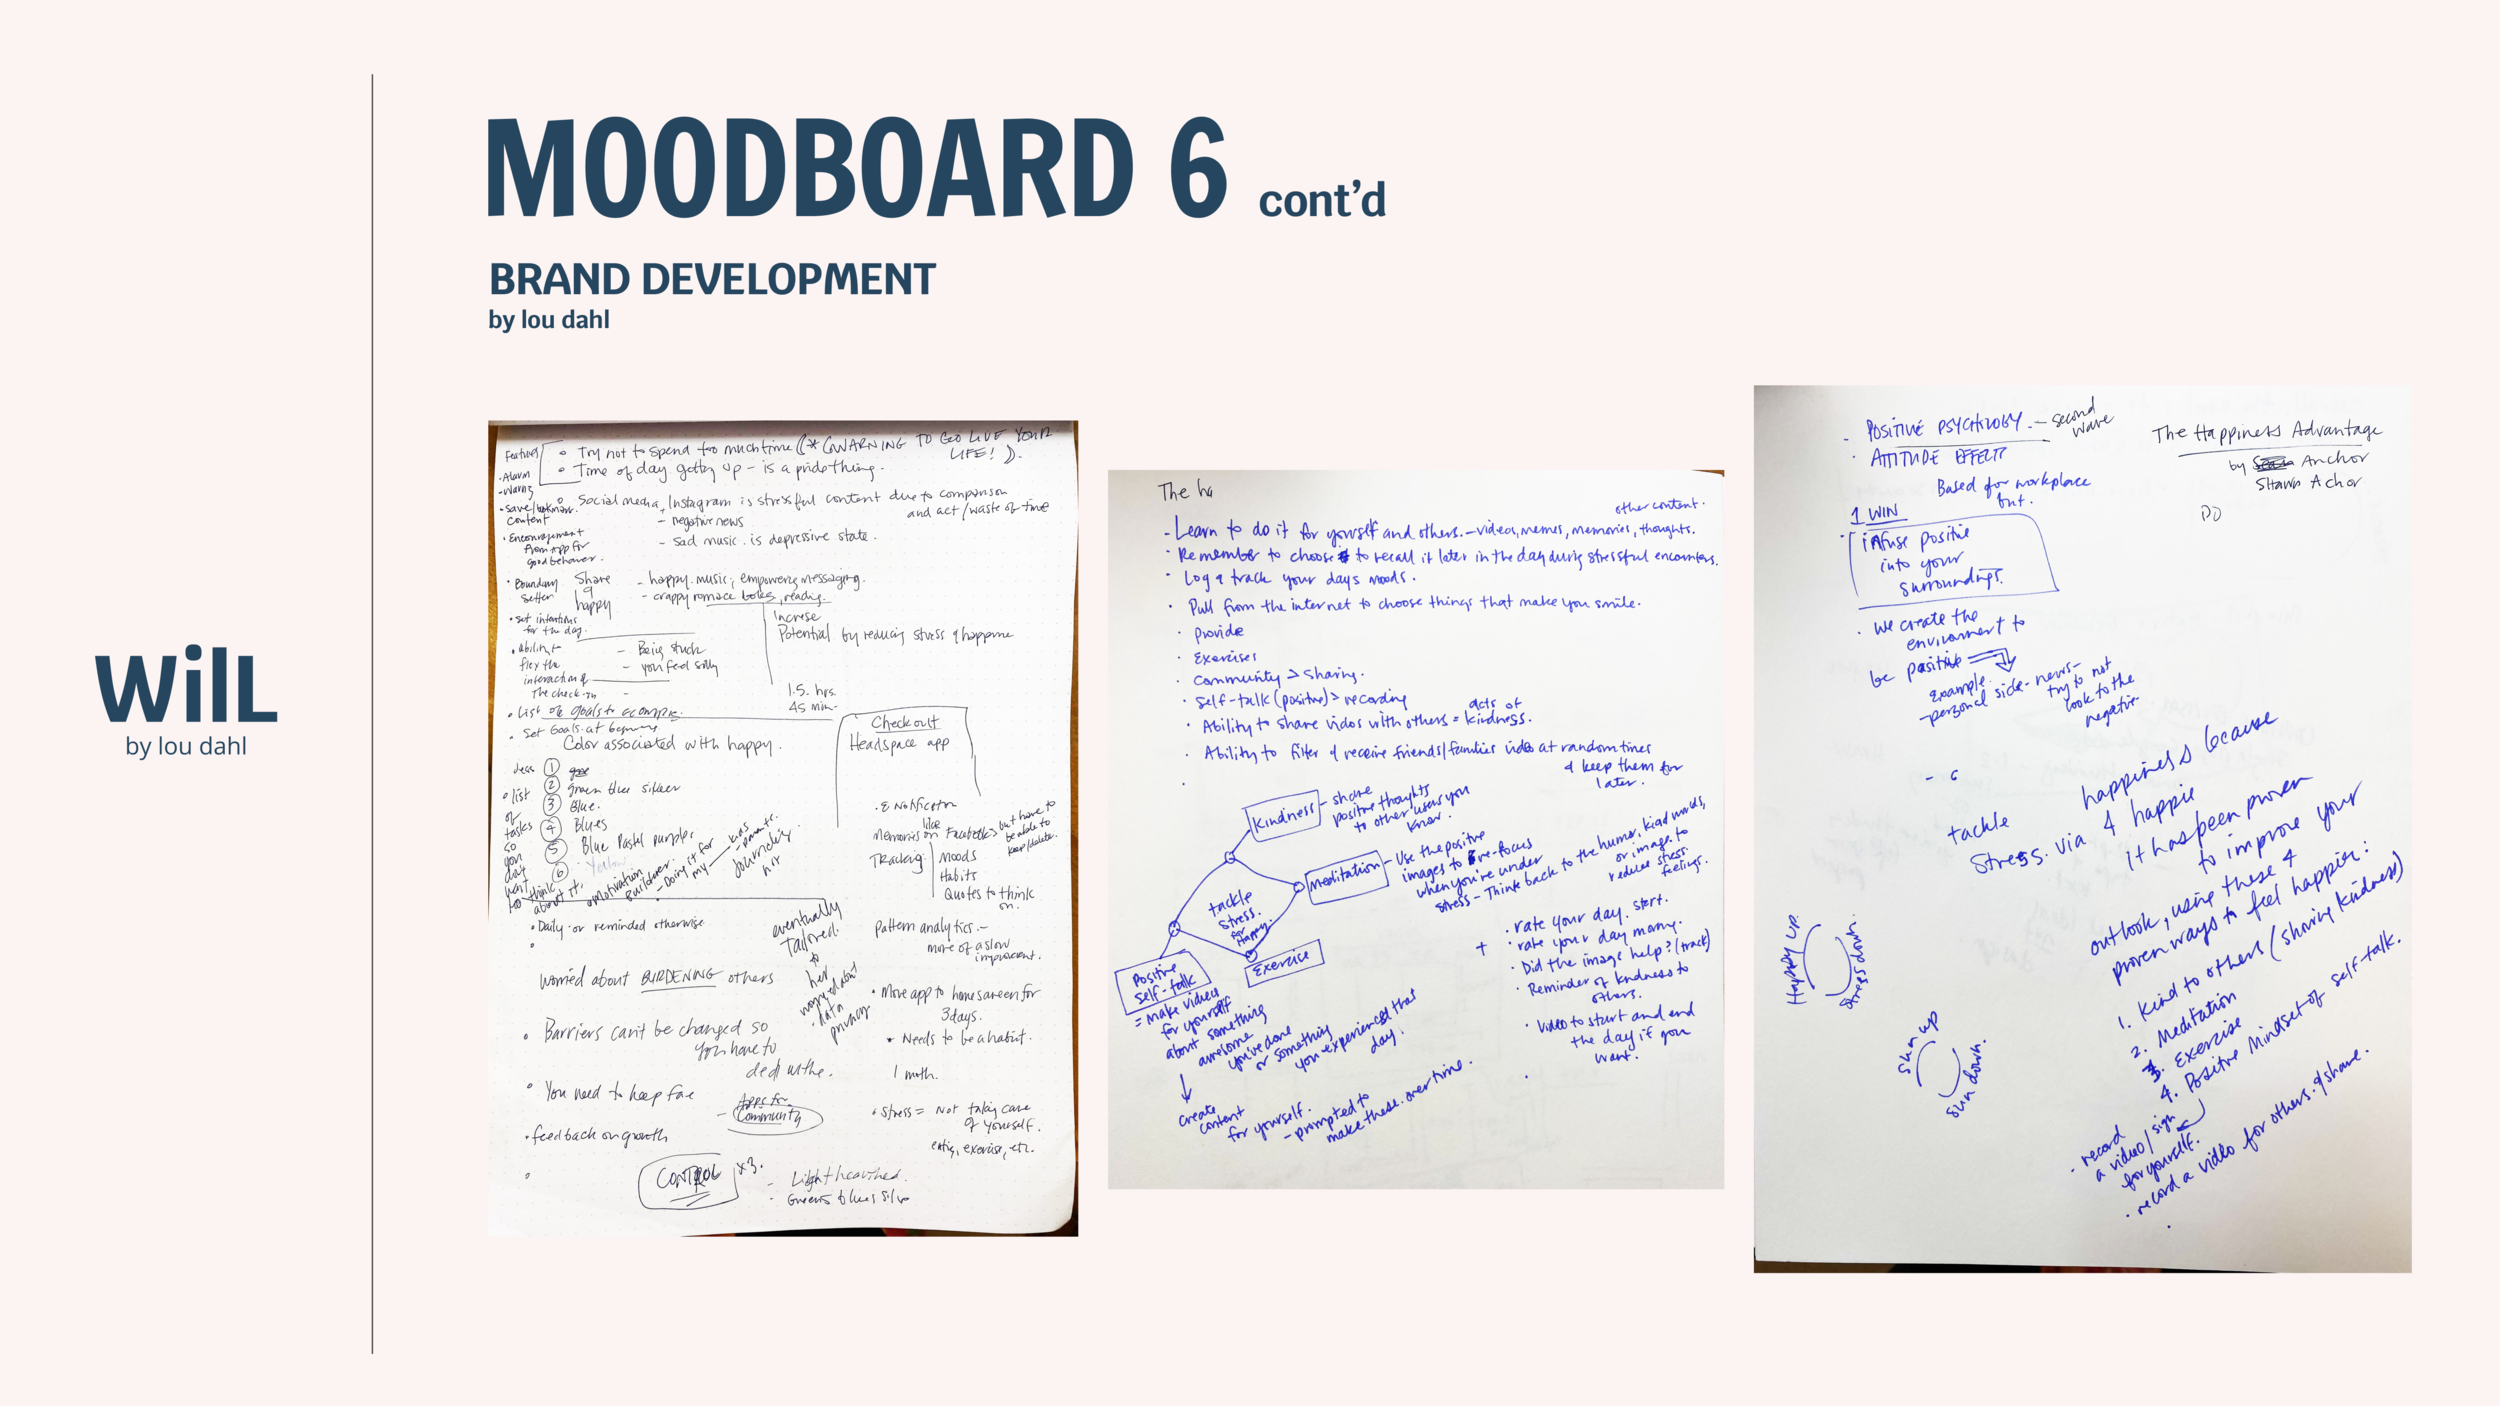 MOODBOARD 6 cont'd
BRAND DEVELOPMENT
by lou dahl
WilL
by lou dahl
Features
• Try not to spend too much time (* WARNING TO GO LIVE YOUR
LIFE!).
• Time of day getting up - is a pride thing.
• Alarm
- Warning
• Save/bookmark
content
• Encouragement
from app for
good behavior.
• Boundary
Setter
• Set intentions
for the day.
• ability to
flex the
interaction of
The check-in
• List of goals to
• Set Goals at
Social media, Instagram is stressful content due to comparison
and act/waste of time
- negative news
- Sad music. is depressive state.
Share
happy
- happy music; empowering messaging.
- crappy romace books, reading.
Increse
Potential by reducing stress &
- Being stuck
- you feel silly
1.5. hrs.
45 min
Color associated with happy.
Checkout
Headspace app
ideas
① 
② green blue silver
③ Blue.
④ Blues
⑤ Blue Pastel purple.
⑥ Yellow
• list
of
tasks
so
you
don't
have
to think
about it.
• Motivation
Builder
- Doing it for
my
kids
journaling
Memories like on Facebook > but have to
be able to
keep/delete.
Tracking
Moods
Habits
Quotes to think
on.
• Daily or reminded otherwise
eventually
Tailored.
to
her
worried about
• data
privacy
Pattern analytics. -
more of a slow
Worried about BURDENING others
• Move app to home screen for
3 days.
• Needs to be a habit.
• Barriers can't be changed so
you have to
1 moth.
• You need to keep
Apps for
- Community
• Stress = Not taking care
of yourself.
eating, exercise, etc.
• feedback on growth
CONTROL x3.
- Light hearted.
- Greens blues silver
The ha
other content.
- Learn to do it for yourself and others. - videos, memes, memories, thoughts.
• Remember to choose to recall it later in the day during stressful encounters.
• Log & track your days moods.
• Pull from the internet to choose things that make you smile.
• Provide
• Exercises
• Community > Sharing.
• Self-talk (positive) > recording
• Ability to share vidos with others = acts of
kindness.
• Ability to filter & receive friends/families video at random times
& keep them for
later.
Kindness
- share
positive thoughts
to other users you
know.
Meditation
- Use the positive
images to re-focus
when you're under
stress - Think back to the humor, kind words,
or image. to
reduce stress.
feelings.
tackle
stress.
for
Happy.
Exercise
Positive
Self-talk
= make videos
for yourself
about something
awesome
you've done
or something
you experienced that
day.
create
content
for yourself.
- prompted to
make these. over time.
+
• rate your day. start.
• rate your day
• Did the image help? (track)
• Reminder of kindness to
others.
• Video to start and end
the day if you
want.
- POSITIVE PSYCHOLOGY. - second
wave
• ATTITUDE EFFECTS
The Happiness Advantage
by Anchor
Shawn Achor
DO
Based for workplace
but.
1 WIN
• infuse positive
into your
surroundings.
• We create the
enviroment to
be positive
example.
- personal side - news -
try to not
look to the
negative
tackle happiness because
Stress. via 4 happie
it has been proven
to improve your
outlook, using these 4
proven ways to feel happier:
1. Kind to others (sharing kindness)
2. Meditation
3. Exercise
4. Positive Mindset - of self-talk.
- record
a video/sign
for yourself.
• record a video for others. & share.
Happy up.
Stress down.
sun up
sun down.